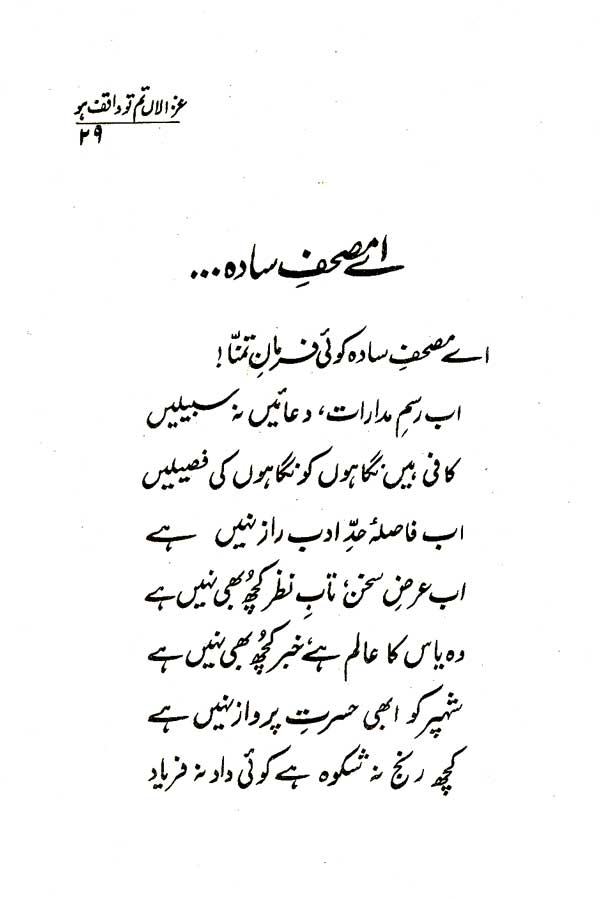 غزالاں تم تو واقف ہو
۲۹
اے مصحفِ سادہ ...
اے مصحفِ سادہ کوئی فرمانِ تمنّا!
اب رسمِ مدارات، دعائیں نہ سبیلیں
کافی ہیں نگاہوں کو نگاہوں کی فصیلیں
اب فاصلۂ حدِّ ادب راز نہیں ہے
اب عرضِ سخن، تابِ نظر کچھ بھی نہیں ہے
وہ یاس کا عالم ہے، خبر کچھ بھی نہیں ہے
شہپر کو ابھی حسرتِ پرواز نہیں ہے
کچھ رنج نہ شکوہ ہے کوئی داد نہ فریاد